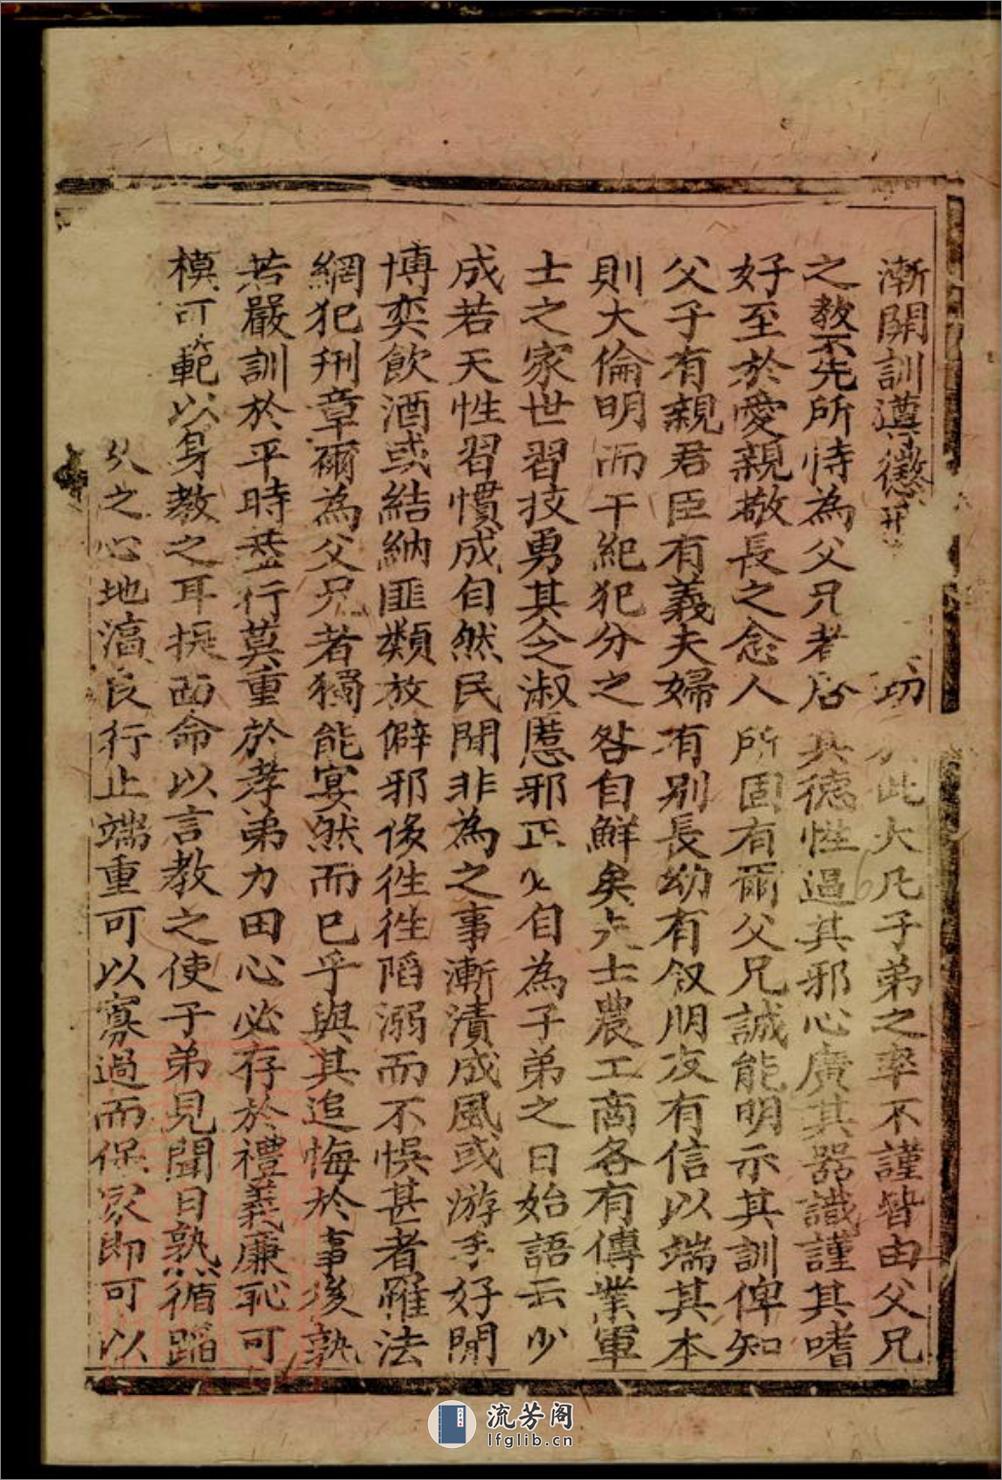 漸開訓遵懲切此大凡子弟之率不謹皆由父兄
之教不先所恃為父兄者啓其德性遏其邪心廣其器識謹其嗜
好至於愛親敬長之念人所固有爾父兄誠能明示其訓俾知
父子有親君臣有義夫婦有別長幼有叙朋友有信以端其本
則大倫明而干紀犯分之咎自鮮矣夫士農工商各有傳業軍
士之家世習技勇其令淑慝邪正必自為子弟之日始語云少
成若天性習慣成自然民間非為之事漸漬成風或游手好閒
博奕飲酒或結納匪類放僻邪侈徃徃陷溺而不悞甚者罹法
網犯刑章爾為父兄者獨能宴然而已乎與其追悔於事後孰
若嚴訓於平時葢行莫重於孝弟力田心必存於禮義廉恥可
模可範以身教之耳提面命以言教之使子弟見聞日熟循蹈
久之心地淳良行止端重可以寡過而保家即可以
流芳阁
lfglib.cn